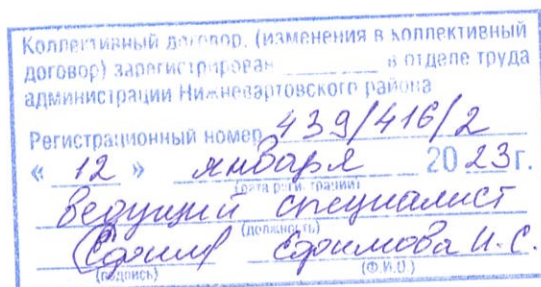 Коллективный договор, (изменения в коллективный
договор) зарегистрирован ________ в отделе труда
администрации Нижневартовского района
Регистрационный номер 439/416/2
« 12 » января 2023г.
(дата регистрации)
ведущий специалист
(должность)
Ефимова И.С.
(подпись) (Ф.И.О.)